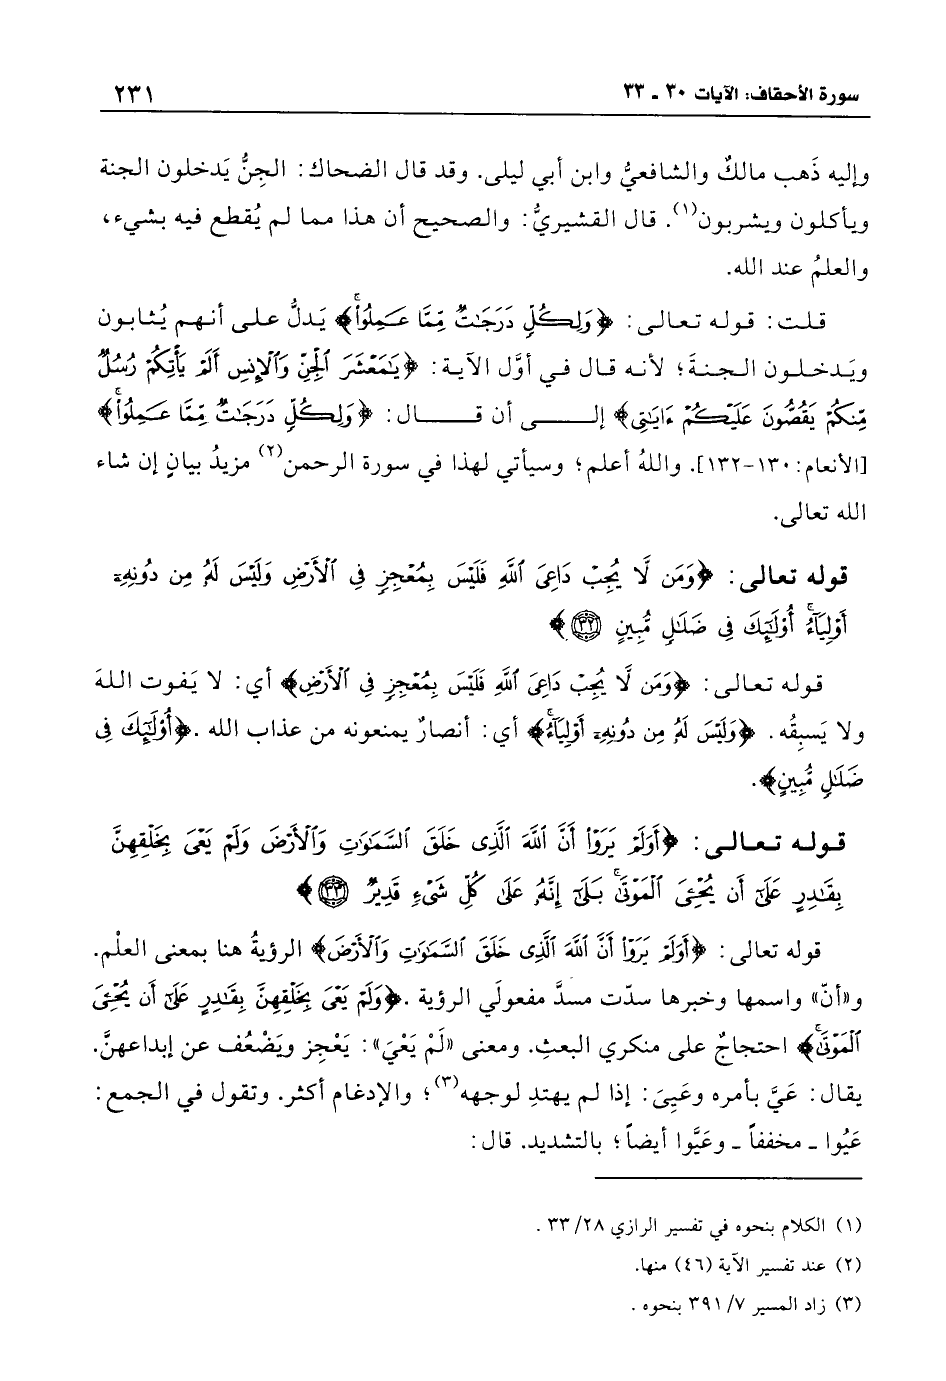 سورة الأحقاف: الآيات ٣٠ ـ ٣٣ ٢٣١
وإليه ذَهب مالكٌ والشافعيُّ وابن أبي ليلى. وقد قال الضحاك: الجِنُّ يَدخلون الجنة
ويأكلون ويشربون(١). قال القشيريُّ: والصحيح أن هذا مما لم يُقطع فيه بشيء،
والعلمُ عند الله.
قلت: قوله تعالى: ﴿وَلِكُلٍّ دَرَجَٰتٌ مِّمَّا عَمِلُواْۚ﴾ يَدلُّ على أنهم يُثابون
ويَدخلون الجنةَ؛ لأنه قال في أوَّل الآية: ﴿يَٰمَعْشَرَ ٱلْجِنِّ وَٱلْإِنسِ أَلَمْ يَأْتِكُمْ رُسُلٌ
مِّنكُمْ يَقُصُّونَ عَلَيْكُمْ ءَايَٰتِى﴾ إلى أن قال: ﴿وَلِكُلٍّ دَرَجَٰتٌ مِّمَّا عَمِلُواْۚ﴾
[الأنعام: ١٣٠-١٣٢]. واللهُ أعلم؛ وسيأتي لهذا في سورة الرحمن(٢) مزيدُ بيانٍ إن شاء
الله تعالى.
قوله تعالى: ﴿وَمَن لَّا يُجِبْ دَاعِىَ ٱللَّهِ فَلَيْسَ بِمُعْجِزٍ فِى ٱلْأَرْضِ وَلَيْسَ لَهُۥ مِن دُونِهِۦٓ
أَوْلِيَآءُۚ أُوْلَٰٓئِكَ فِى ضَلَٰلٍ مُّبِينٍ ٣٢﴾
قوله تعالى: ﴿وَمَن لَّا يُجِبْ دَاعِىَ ٱللَّهِ فَلَيْسَ بِمُعْجِزٍ فِى ٱلْأَرْضِ﴾ أي: لا يَفوت اللهَ
ولا يَسبِقُه. ﴿وَلَيْسَ لَهُۥ مِن دُونِهِۦٓ أَوْلِيَآءُۚ﴾ أي: أنصارٌ يمنعونه من عذاب الله. ﴿أُوْلَٰٓئِكَ فِى
ضَلَٰلٍ مُّبِينٍ﴾.
قوله تعالى: ﴿أَوَلَمْ يَرَوْاْ أَنَّ ٱللَّهَ ٱلَّذِى خَلَقَ ٱلسَّمَٰوَٰتِ وَٱلْأَرْضَ وَلَمْ يَعْىَ بِخَلْقِهِنَّ
بِقَٰدِرٍ عَلَىٰٓ أَن يُحْـِۧىَ ٱلْمَوْتَىٰۚ بَلَىٰٓ إِنَّهُۥ عَلَىٰ كُلِّ شَىْءٍ قَدِيرٌ ٣٣﴾
قوله تعالى: ﴿أَوَلَمْ يَرَوْاْ أَنَّ ٱللَّهَ ٱلَّذِى خَلَقَ ٱلسَّمَٰوَٰتِ وَٱلْأَرْضَ﴾ الرؤيةُ هنا بمعنى العلْم.
و«أنّ» واسمها وخبرها سدّت مسدَّ مفعولَي الرؤية. ﴿وَلَمْ يَعْىَ بِخَلْقِهِنَّ بِقَٰدِرٍ عَلَىٰٓ أَن يُحْـِۧىَ
ٱلْمَوْتَىٰۚ﴾ احتجاجٌ على منكري البعث. ومعنى «لَمْ يَعْيَ»: يَعْجِز ويَضْعُف عن إبداعهنَّ.
يقال: عَيَّ بأمره وعَيِيَ: إذا لم يهتدِ لوجهه(٣)؛ والإدغام أكثر. وتقول في الجمع:
عَيُوا ـ مخففاً ـ وعَيَّوا أيضاً؛ بالتشديد. قال:
(١) الكلام بنحوه في تفسير الرازي ٢٨/ ٣٣ .
(٢) عند تفسير الآية (٤٦) منها.
(٣) زاد المسير ٧/ ٣٩١ بنحوه .